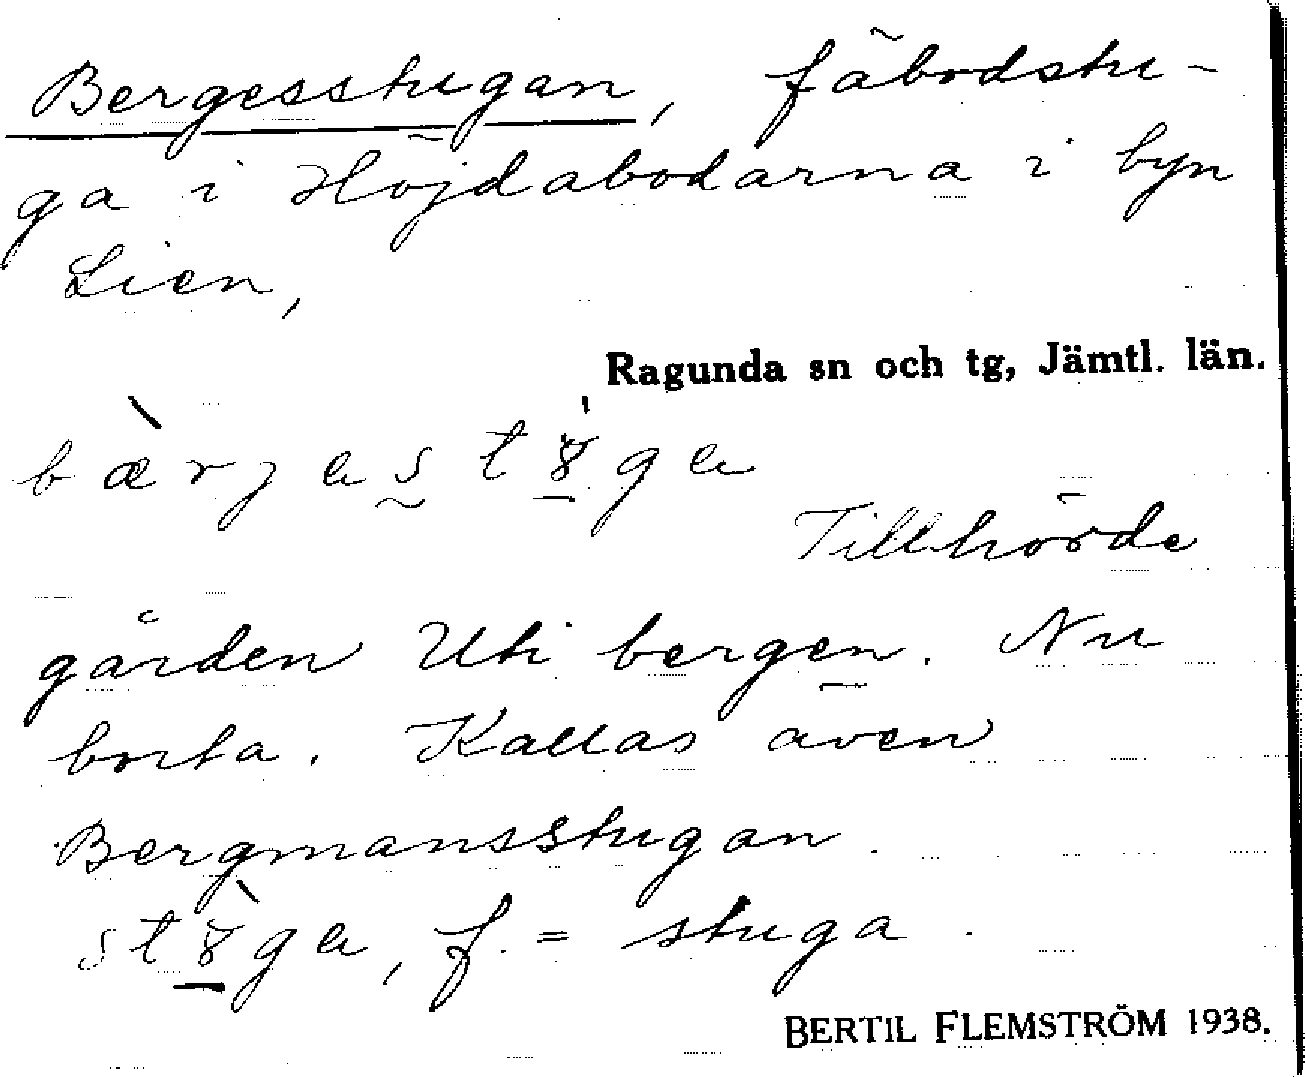 Bergesstugan, fäbodstu-
ga i Höjdabodarna i byn
Lien,
Ragunda sn och tg, Jämtl. län.
Tillhörde
gården Uti bergen. Nu
borta. Kallas även
Bergmansstugan.
f. = stuga.
BERTIL FLEMSTRÖM 1938.